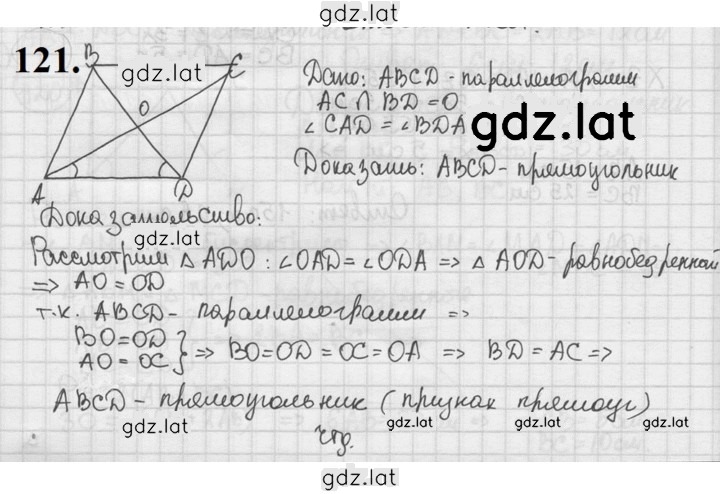 gdz.lat
121.
B
gdz.lat
C
O
A
D
Дано: ABCD - параллелограмм
AC ∩ BD = O
∠ CAD = ∠ BDA
gdz.lat
Доказать: ABCD - прямоугольник
Доказательство:
gdz.lat
Рассмотрим △ ADO : ∠OAD = ∠ODA => △ AOD - равнобедренный
=> AO = OD
gdz.lat
т.к. ABCD - параллелограмм =>
BO = OD
AO = OC } => BO = OD = OC = OA => BD = AC =>
ABCD - прямоугольник (признак прямоуг)
gdz.lat
gdz.lat
чтд.
gdz.lat